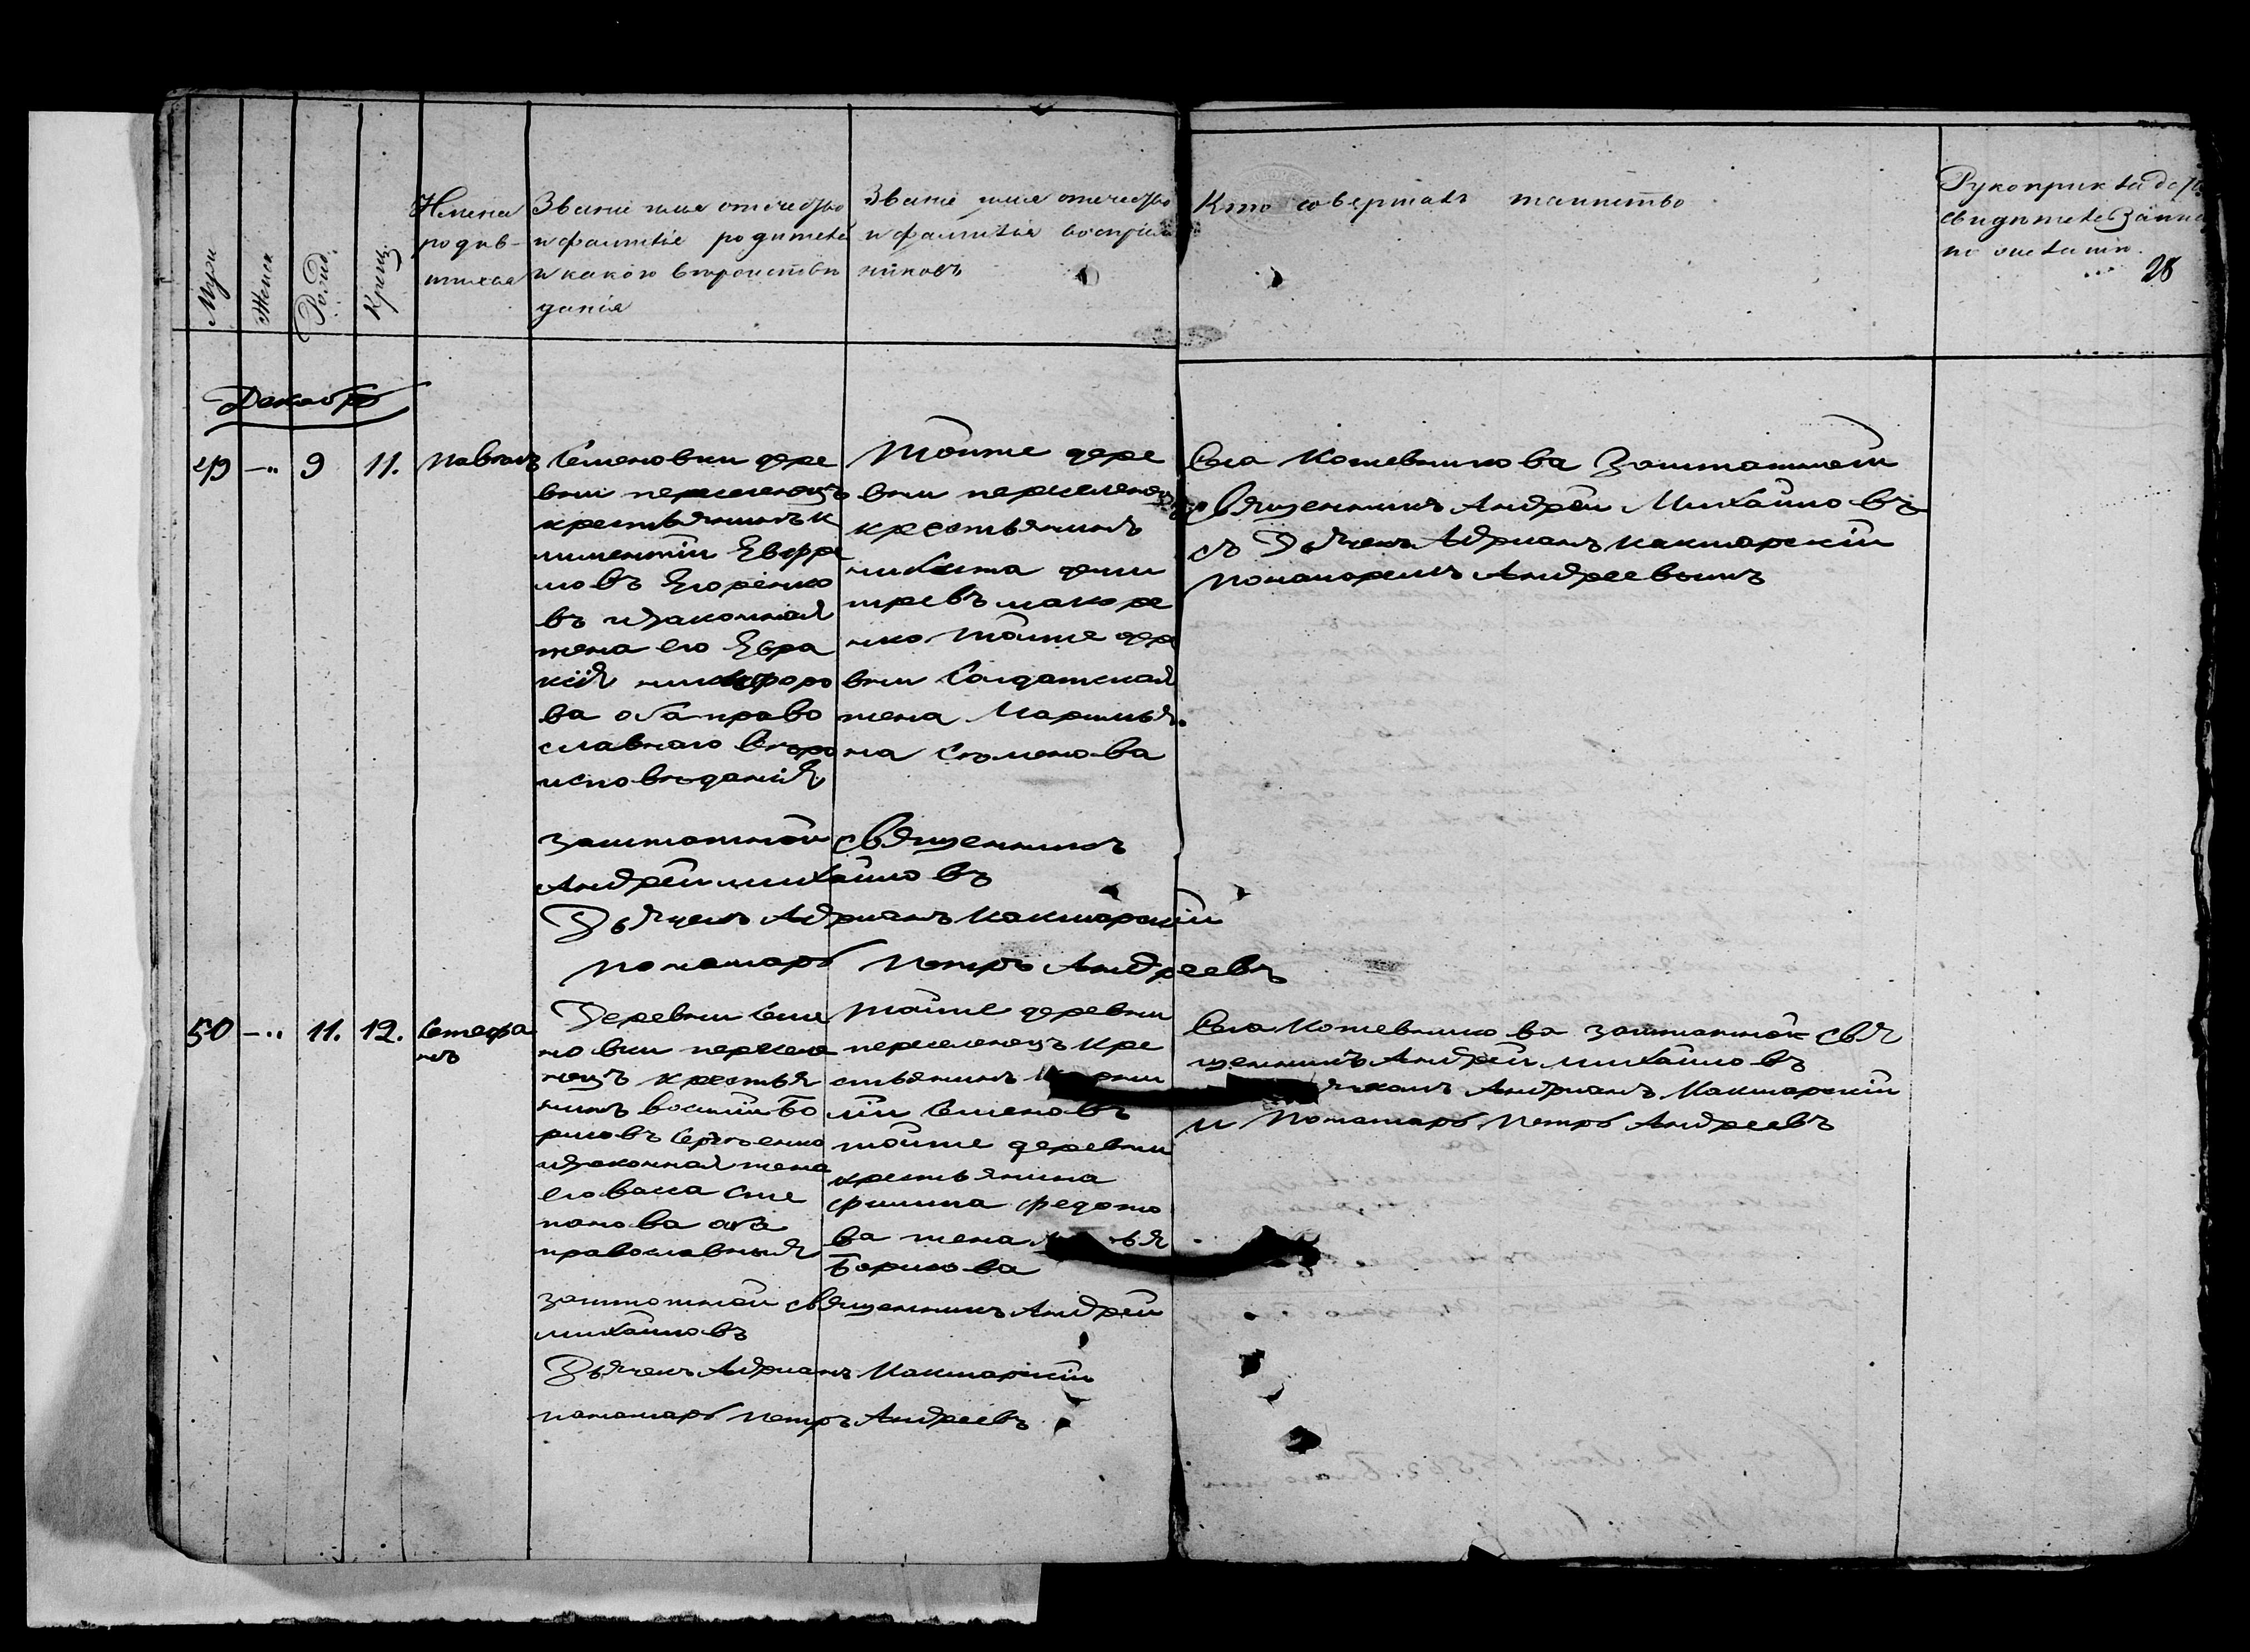 Муж
Женск
Рожд.
Крещ
Имена
родив-
шихся
Званіе имя отечество
и фамиліе родителей
и какого вѣроисповѣ
данія
Званіе имя отечество
и фамилія воспріем
никовъ
Кто совершалъ таинство
Рукоприк
свидѣтелей записи
по желанію
28
Декабрь
49 — 9 11. Павелъ
Семеновки дере
вни переселенецъ
крестьянинъ к
лиментій Евфре
мовъ Егоренко
въ и законная
жена его Евра
ксія никифоро
ва оба право
славнаго вѣро
исповѣданія
Тойже дере
вни переселенецъ
крестьянинъ
никита дими
тревъ макаре
нко тойже дере
вни Солдатская
жена Маримья
на Семенова
Села Кошевникова Заштатной
священникъ Андрей Михайловъ
съ Дьячемъ Адрианъ Какшарскій
пономаремъ Андреевымъ
заштатной священникъ
Андрей михайловъ
Дьячекъ Адрианъ Какшарскій
пономарь Петръ Андреевъ
50 — 11. 12. Стефа
нъ
Деревни Семе
новки пересел
енецъ крестья
нинъ восилій Бо
рисовъ Сергѣенко
и законная жена
его васса Сте
панова оба
православныя
тойже деревни
переселенецъ кре
стьянинъ
лій Семеновъ
тойже деревни
крестьянина
филипа федото
ва жена
Борисова
Села Кошевникова заштатной свя
щенникъ Андрей михайловъ
Андрианъ Какшарскій
и Пономарь Петръ Андреевъ
заштатной священникъ Андрей
михайловъ
Дьячекъ Адрианъ Какшарскій
пономарь Петръ Андреевъ